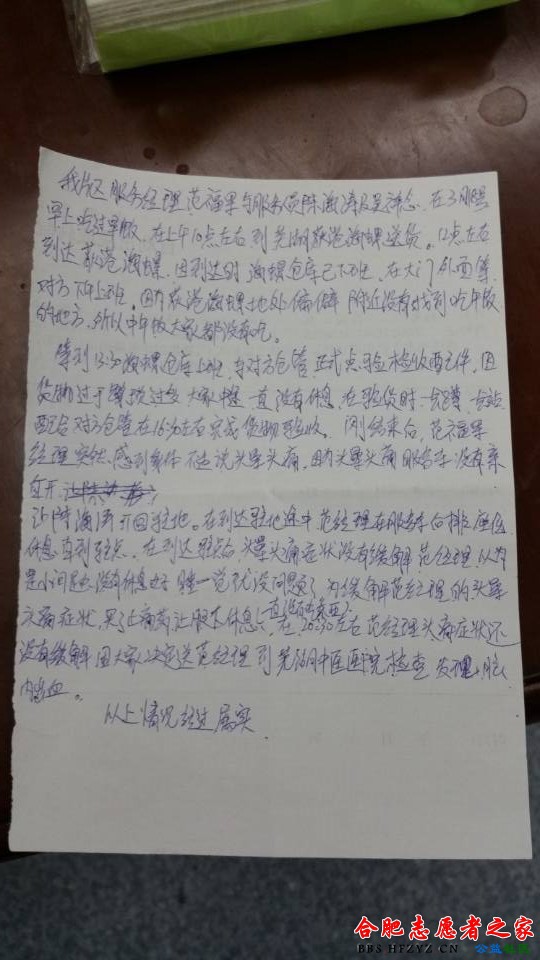 我片区服务经理范福果与服务员陈海涛及吴祥念 在3月
早上吃过早饭,在上午10点左右到芜湖荻港海螺送货。12点左右
到达荻港海螺,因到达时海螺仓库已下班,在大门外面等
对方下午上班。因为荻港海螺地处偏僻附近没有找到吃午饭
的地方,所以中午饭大家都没有吃。
等到13:30海螺仓库上班,与对方仓管正式点验检收配件,因
货物过于 过多大家 一直没有休息,在验货时一会蹲,一会站
配合对方仓管在16点左右完成货物验收。刚结束后,范福果
经理突然感到身体不适说头晕头痛,因为头晕头痛服务车没有亲
自开
让陈海涛开回驻地。在到达驻地途中范经理在服务车后排座位
休息直到驻点,在到达驻点后头晕头痛症状没有缓解范经理认为
是小问题没有休息好睡一觉就没问题了,为缓解范经理的头晕
头痛症状,买了止痛药让服下休息,在20:30左右范经理头痛症状还
一直没有
没有缓解因大家决定送范经理到芜湖中医医院检查发现脑
内出血。
以上情况经过属实
合肥志愿者之家
BBS.HFZYZ.CN